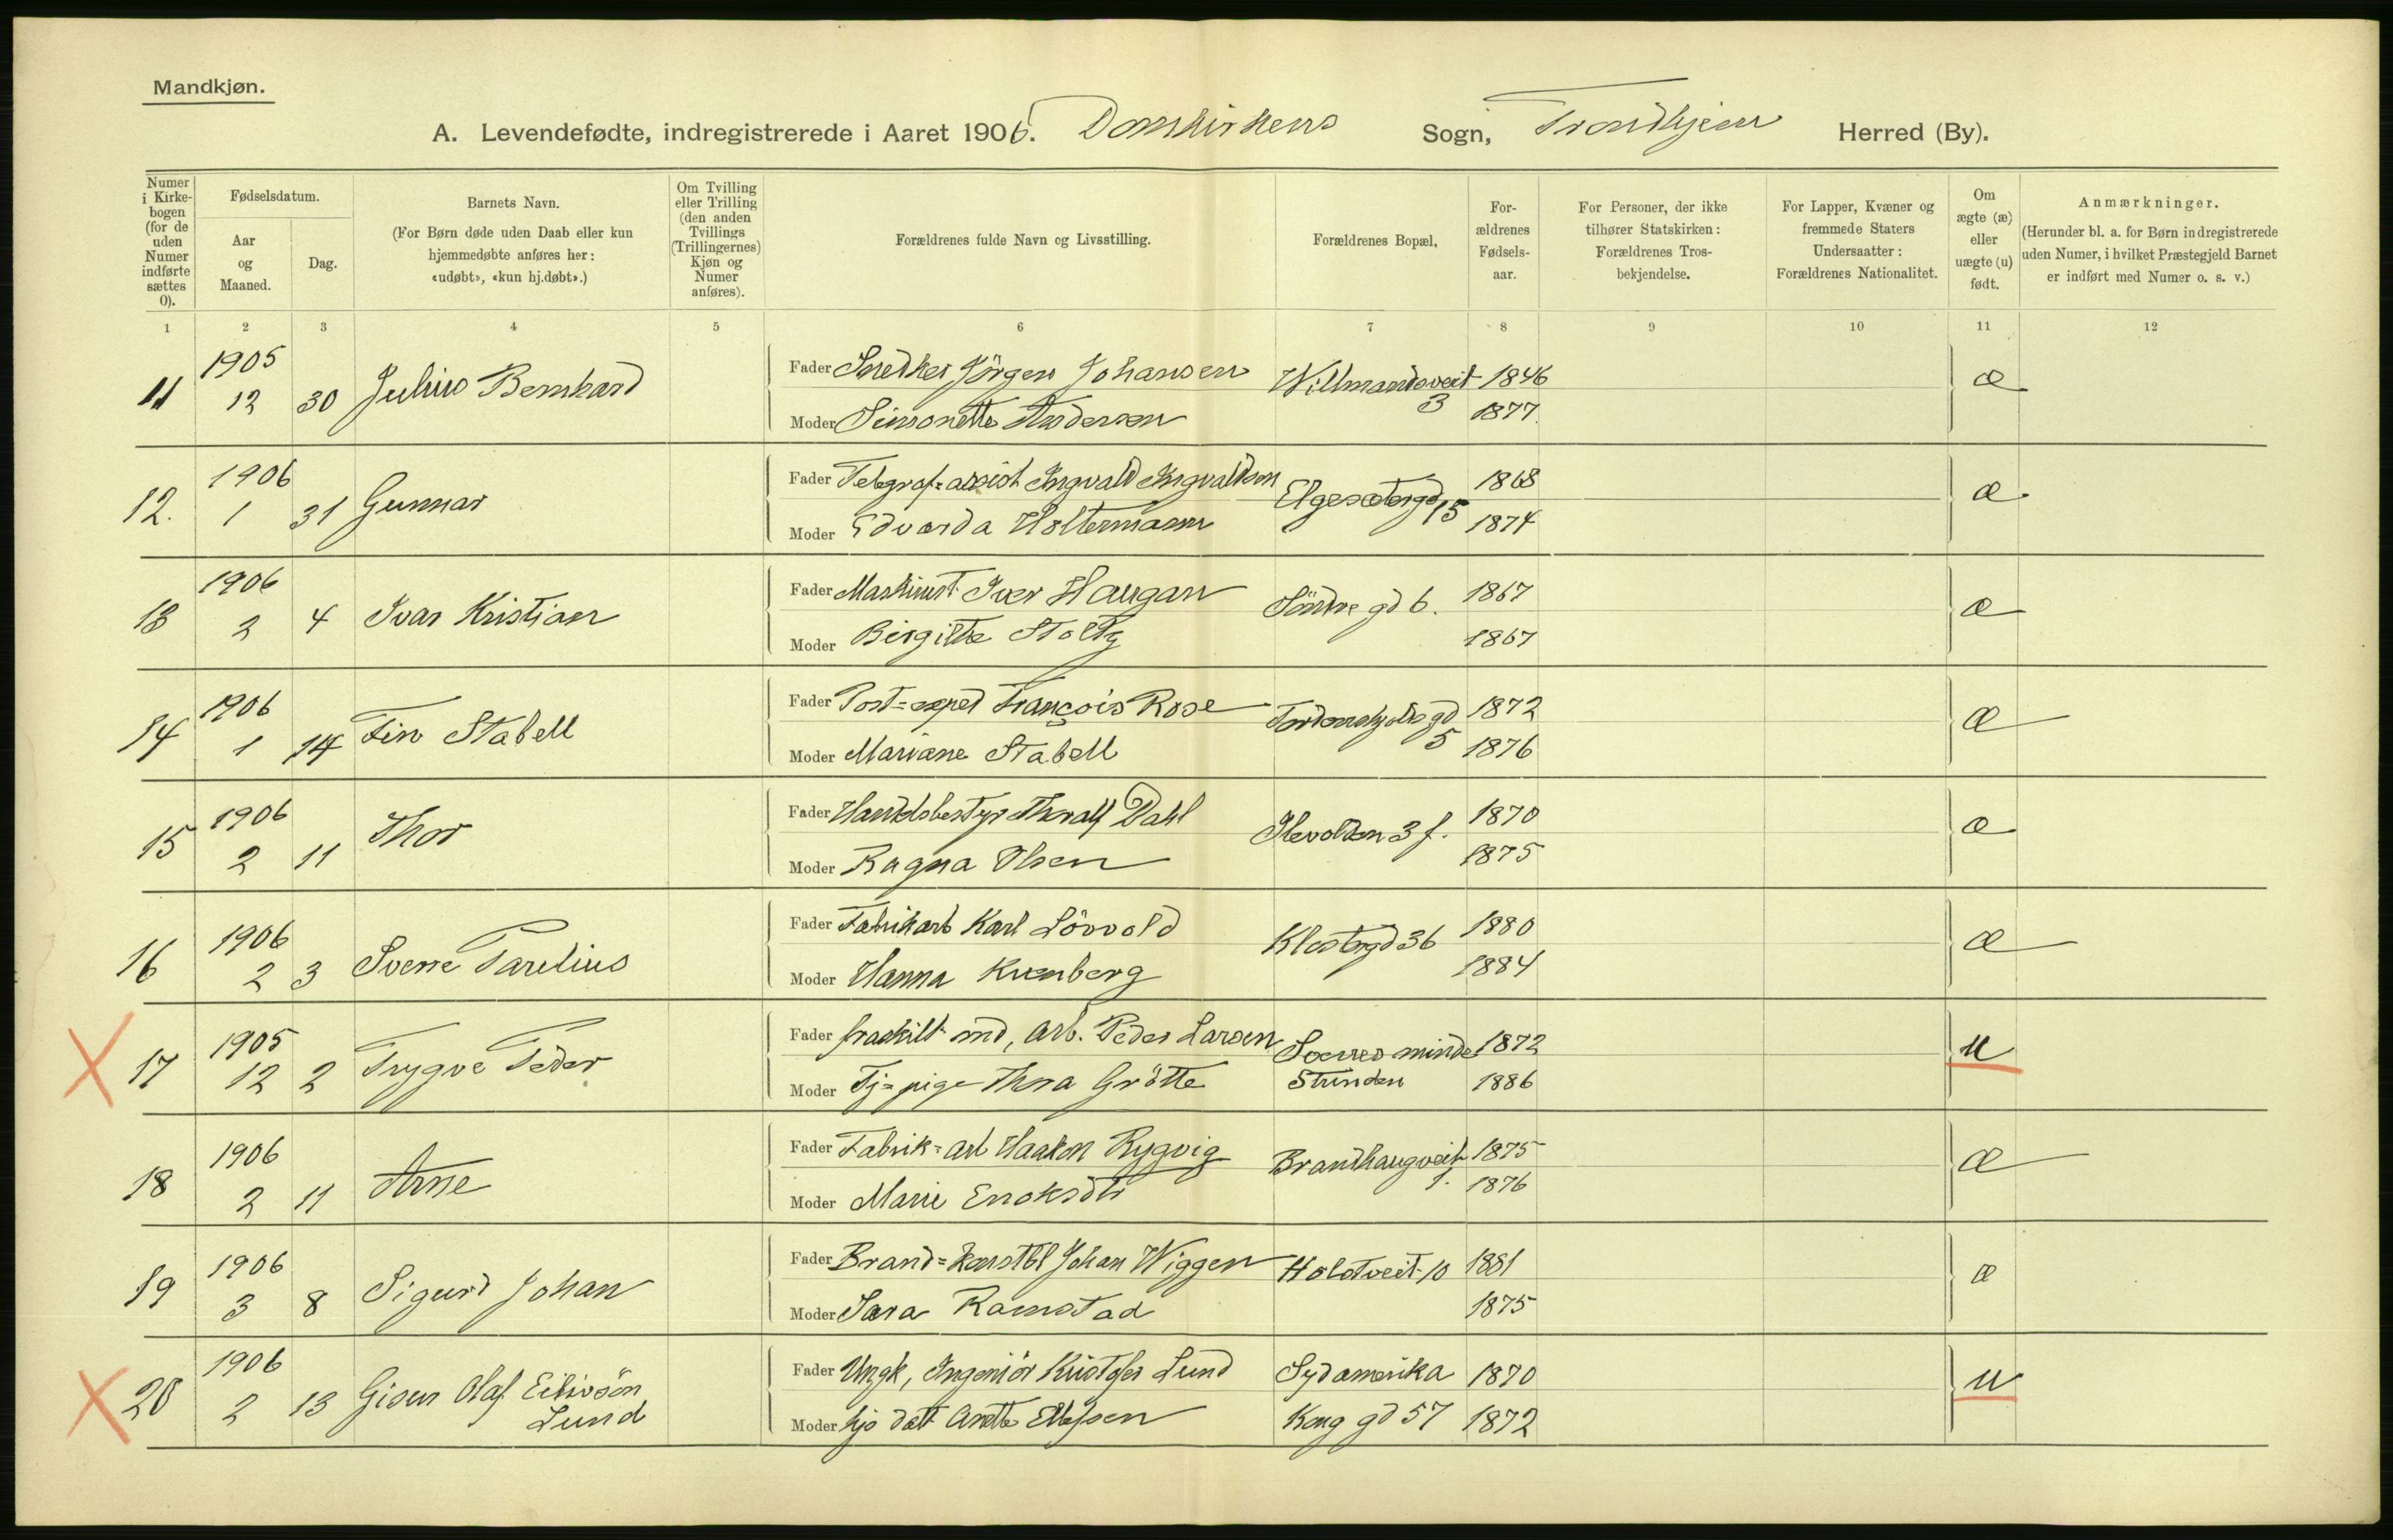 Mandkjøn.
A. Levendefødte, indregistrerede i Aaret 1906. Domkirkens Sogn, Trondhjem Herred (By).
Numer i Kirkebogen (for de uden Numer indførte sættes 0).
Fødselsdatum.
Aar og Maaned.
Dag.
Barnets Navn.
(For Børn døde uden Daab eller kun hjemmedøbte anføres her: «udøbt», «kun hj.døbt».)
Om Tvilling eller Trilling (den anden Tvillings (Trillingernes) Kjøn og Numer anføres).
Forældrenes fulde Navn og Livsstilling.
Forældrenes Bopæl.
Forældrenes Fødselsaar.
For Personer, der ikke tilhører Statskirken: Forældrenes Trosbekjendelse.
For Lapper, Kvæner og fremmede Staters Undersaatter: Forældrenes Nationalitet.
Om ægte (æ) eller uægte (u) født.
Anmærkninger.
(Herunder bl. a. for Børn indregistrerede uden Numer, i hvilket Præstegjeld Barnet er indført med Numer o. s. v.)
1 2 3 4 5 6 7 8 9 10 11 12
11 1905 12 30 Julius Bernhard
Fader Snedker Jörgen Johansen Willmandsveit 3 1846 æ
Moder Simonette Andersen 1877
12. 1906 1 31 Gunnar
Fader Telegraf=assist Ingvald Ingvaldsen Elgesætergd 15 1868 æ
Moder Edvarda Holtermann 1874
13 1906 2 4 Ivar Kristian
Fader Maskinist Iver Haugan Söndre gd 6. 1867 æ
Moder Birgitte Stoltz 1867
14 1906 1 14 Fin Stabell
Fader Post=exped François Rose Tordenskjolds gd 5 1872 æ
Moder Mariane Stabell 1876
15 1906 2 11 Thor
Fader Handelsbestyr Thoralf Dahl Ilevolden 3 f. 1870 æ
Moder Ragna Olsen 1875
16 1906 2 3 Sverre Parelius
Fader Fabrikarb Karl Lövvold Klostergd 36 1880 æ
Moder Hanna Kvenberg 1884
17 1905 12 2 Trygve Peder
Fader fraskilt md, Arb. Peder Larsen Sverres minde 1872 u
Moder Tj=pige Thora Grötte Strinden 1886
18 1906 2 11 Arne
Fader Fabrik=arb Haakon Rygvig Brandhaugveit 1. 1875 æ
Moder Marie Enoksdtr 1876
19 1906 3 8 Sigurd Johan
Fader Brand=konstbl Johan Wiggen Holstveit 10 1881 æ
Moder Sara Ramstad 1875
20 1906 2 13 Olaf Eilivsön Lund
Fader Ungk, Ingeniör Kristofer Lund Sydamerika 1870 u
Moder hjv datt Anette Ellefsen Kong gd 57 1872